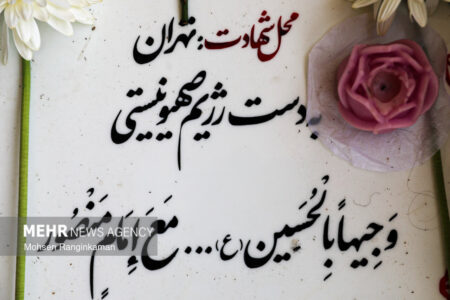 محل شهادت: تهران
به دست رژیم صهیونیستی
وَجیهاً بِالْحُسَینِ (ع)... مَعَ إِمَامٍ مَنْصُ
MEHR NEWS AGENCY
Mohsen Ranginkaman